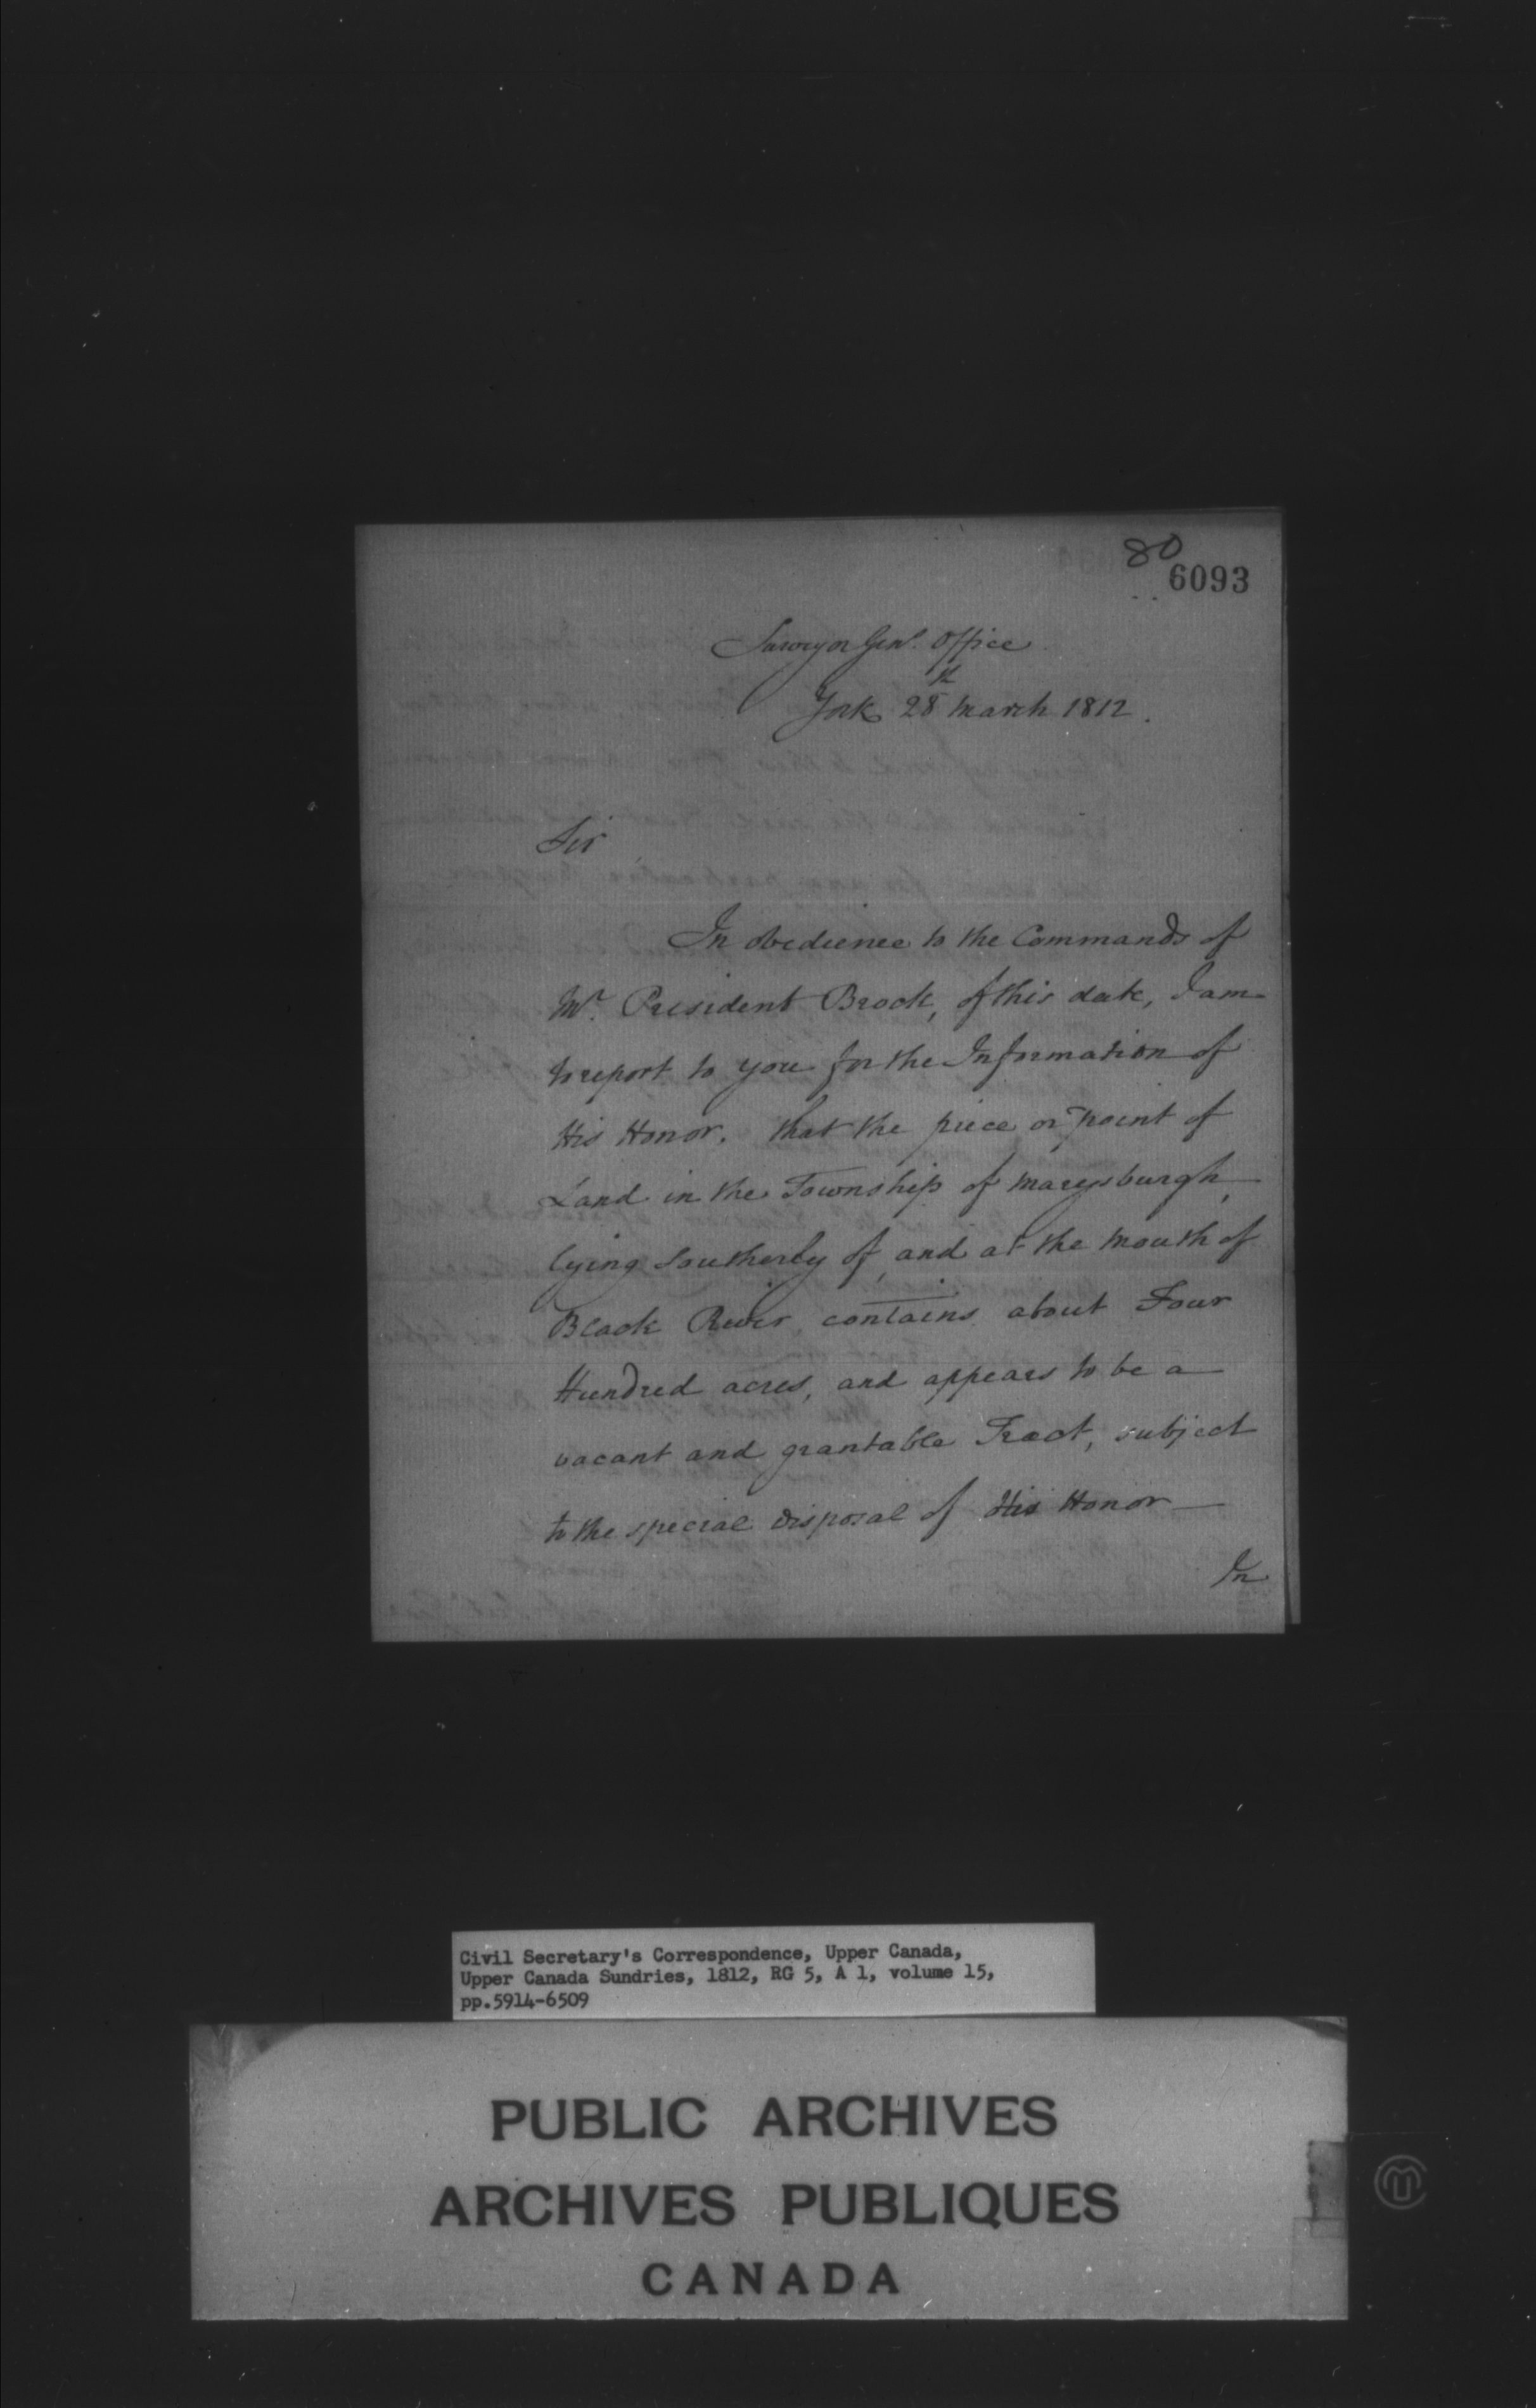 80
6093
Surveyor Genl. Office
York 28th March 1812.
Sir
In obedience to the Commands of
Mr. President Brock, of this date, I am
to report to you for the Information of
His Honor. that the piece or point of
Land in the Township of Marysburgh,
lying Southerly of, and at the Mouth of
Black River, contains about Four
Hundred acres, and appears to be a
vacant and grantable Tract, subject
to the special disposal of His Honor—
In
Civil Secretary's Correspondence, Upper Canada,
Upper Canada Sundries, 1812, RG 5, A 1, volume 15,
pp.5914-6509
PUBLIC ARCHIVES
ARCHIVES PUBLIQUES
CANADA